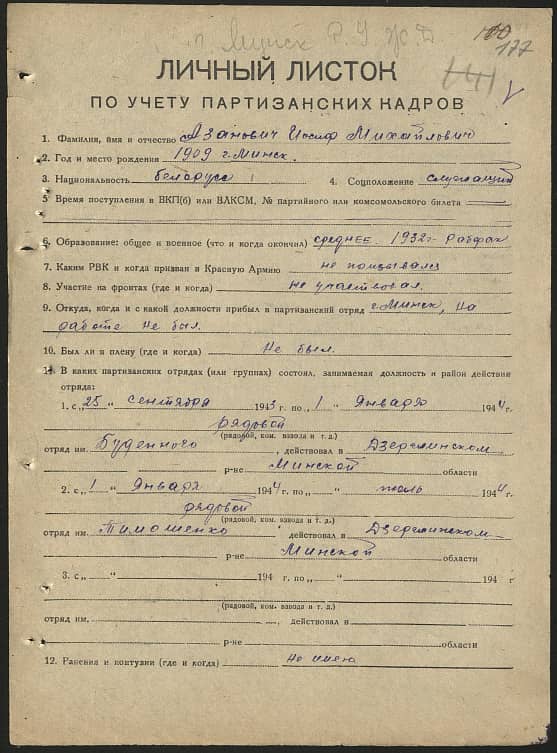 г. Минск Р.У Ж.Д
100
177
ЛИЧНЫЙ ЛИСТОК
ПО УЧЕТУ ПАРТИЗАНСКИХ КАДРОВ
1. Фамилия, имя и отчество Азанович Иосиф Михайлович
2. Год и место рождения 1909 г. Минск.
3. Национальность беларусс 4. Соцположение служащий
5 Время поступления в ВКП(б) или ВЛКСМ, № партийного или комсомольского билета
6. Образование: общее и военное (что и когда окончил) среднее 1932 г. Рабфак
7. Каким РВК и когда призван в Красную Армию не призывался
8. Участие на фронтах (где и когда) не участвовал.
9. Откуда, когда и с какой должности прибыл в партизанский отряд г. Минск, на
работе не был.
10. Был ли в плену (где и когда) Не был.
11. В каких партизанских отрядах (или группах) состоял, занимаемая должность и район действия
отряда:
1. с „25 “ сентября 1943 г. по „1 “ Января 1944 г.
рядовой
(рядовой, ком. взвода и т. д.)
отряд им. Буденного , действовал в Дзержинском
р-не Минской области
2. с „1 “ Января 1944 г. по „ “ июль 1944 г.
рядовой
(рядовой, ком. взвода и т. д.)
отряд им. Тимошенко действовал в Дзержинском
р-не Минской области
3. с „ “ 194 г. по „ “ 194 г
(рядовой, ком. взвода и т. д.)
отряд им. , действовал в
р-не области
12. Ранения и контузии (где и когда) не имею